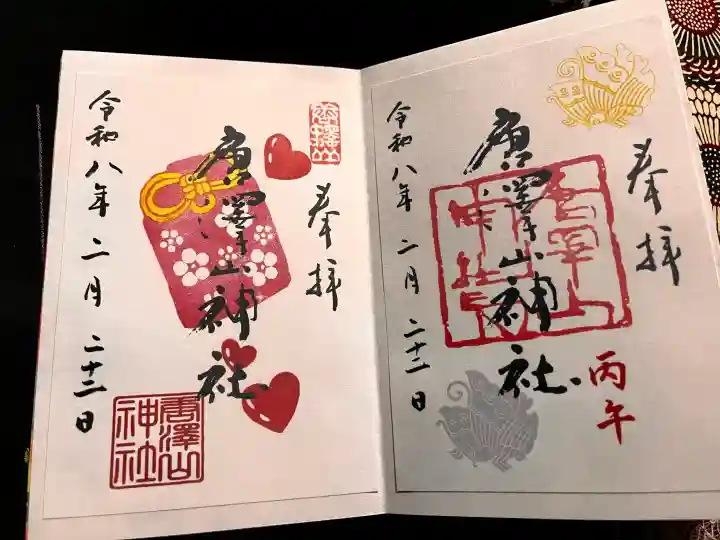 奉拝
唐澤山神社
丙午
令和八年二月二十二日
唐澤山
奉拝
唐澤山神社
唐澤山
神社
令和八年二月二十二日